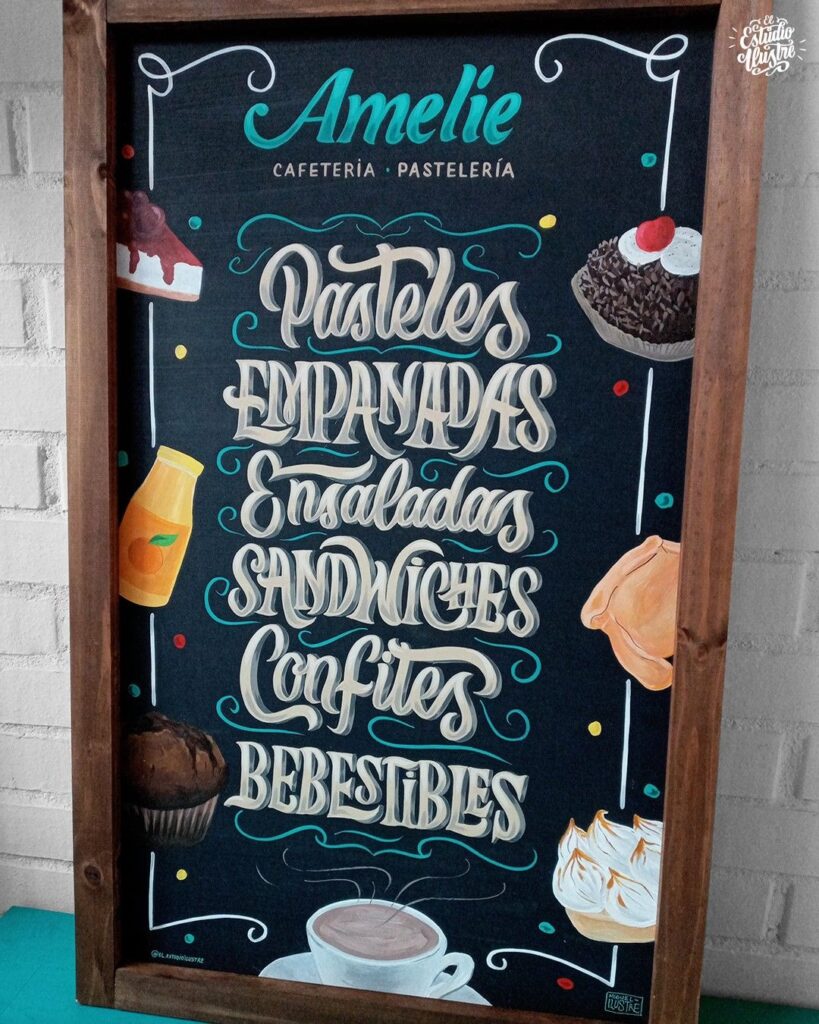 El
Estudio
Ilustre
Amelie
CAFETERÍA · PASTELERÍA
Pasteles
EMPANADAS
Ensaladas
SANDWICHES
Confites
BEBESTIBLES
@EL.ESTUDIOILUSTRE
MIGUEL-
ILUSTRE